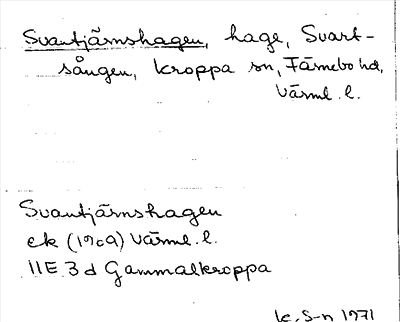 Svantjärnshagen, hage, Svart-
sången, Kroppa sn, Färnebo hd,
Värml. l.
Svantjärnshagen
ek (1909) Värml. l.
11E 3d Gammalkroppa
1971